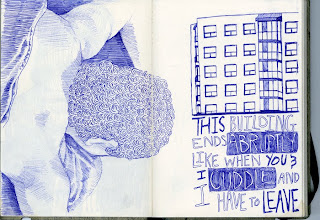 THIS BUILDING
ENDS ABRUPTLY
LIKE WHEN YOU &
I CUDDLE AND
I HAVE TO LEAVE